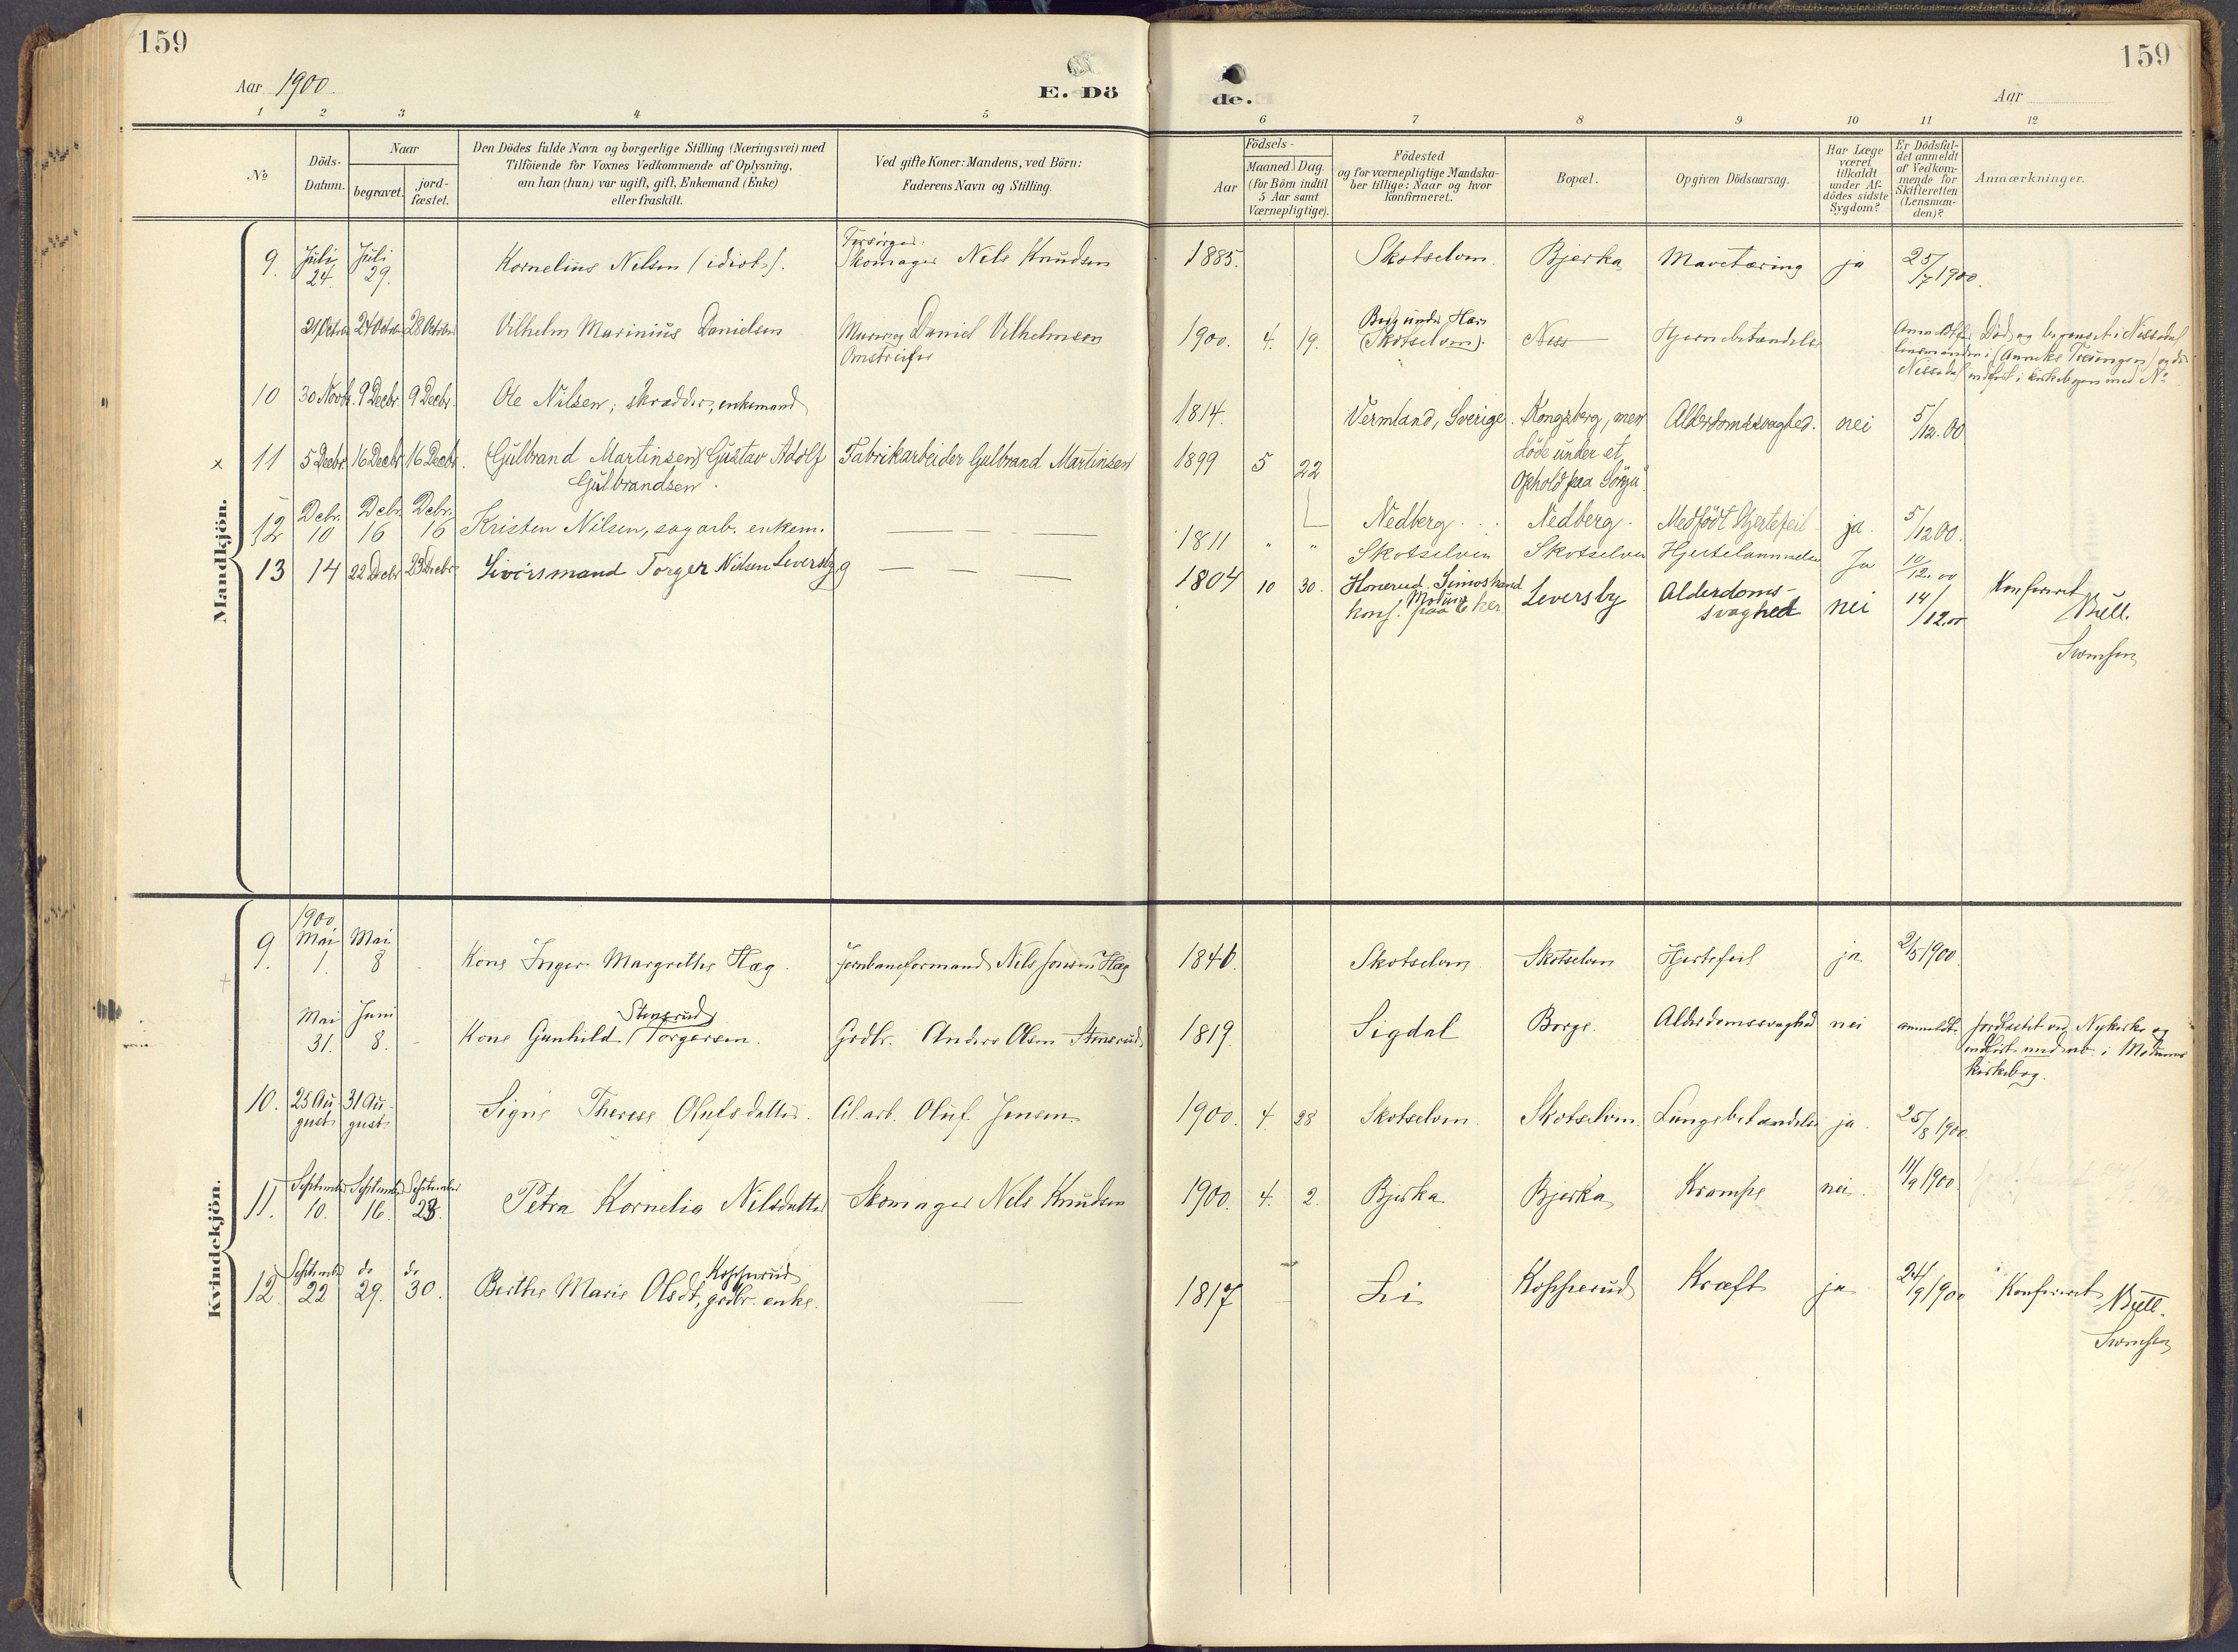 159
Aar 1900
E. Dö
de.
Aar
159
1 2 3 4 5 6 7 8 9 10 11 12
No
Döds-
Datum.
Naar
begravet.
jord-
fæstet.
Den Dödes fulde Navn og borgerlige Stilling (Næringsvei) med
Tilföiende for Voxnes Vedkommende af Oplysning,
om han (hun) var ugift, gift, Enkemand (Enke)
eller fraskilt.
Ved gifte Koner: Mandens, ved Börn:
Faderens Navn og Stilling.
Födsels-
Aar
Maaned. Dag.
(for Börn indtil
5 Aar samt
Værnepligtige).
Födested
og for værnepligtige Mandska-
ber tillige: Naar og hvor
konfirmeret.
Bopæl.
Opgiven Dödsaarsag.
Har Læge
været
tilkaldt
under Af-
dödes sidste
Sygdom?
Er Dödsfal-
det anmeldt
af Vedkom-
mende for
Skifteretten
(Lensman-
den)?
Anmærkninger.
Mandkjön.
9. Juli 24. Juli 29. Kornelius Nilsen (idiot). Forsörger: Skomager Nils Knudsen 1885. Skotselven Bjerka Mavetæring ja 25/7 1900.
21 Octbr 24 Octbr 28 Octbr Vilhelm Marinius Danielsen Daniel Vilhelmsen Omstreifer 1900. 4. 19. (Skotselven). Ness Hjernebetændelse Död og begravet i Nissedal
10 30 Novbr. 9 Decbr 9 Decbr. Ole Nilsen, skrædder, enkemand 1814. Vermland, Sverige. Kongsberg, men döde under et Ophold paa Alderdomssvaghed. nei 5/12.00
x 11 5 Decbr 16 Decbr 16 Decbr. (Gulbrand Martinsen) Gustav Adolf Gulbrandsen. Fabrikarbeider Gulbrand Martinsen 1899 5 22 Nedberg Nedberg. Medfödt Hjertefeil ja 5/12 00.
12 Debr. 10 Debr. 16 Debr. 16 Kristen Nilsen, sagarb. enkem. 1811 " " Skotselven Skotselven Ja 10/12.00
13 14 22 Decbr 23 Decbr Livörsmand Torger Nilsen Leversby 1804 10 30. Honerud Simostrand Modum konf. paa her Leversby Alderdoms-
svaghed nei 14/12.00
Konfereret
Bull.
Kvindekjön.
9. 1900 Mai 1. Mai 8 Kone Inger Margrethe Hæg. Jernbaneformand Nils Jonsen Hæg 1840. Skotselven Skotselven Hjertefeil ja 2/5 1900
Mai 31. Juni 8. Kone Gunhild Torgersen. Stensrud Grdbr. Anders Olsen Stensrud 1819. Sigdal Borge. Alderdomssvaghed nei anmeldt. Jordfæstet ved Nykirke og
indfört i Modums
kirkebog.
10. 25 Au-
gust 31 Au-
gust Signe Therese Olufsdatter. Cil.arb. Oluf Jensen 1900. 4. 28 Skotselven Skotselven. Lungebetændelse ja. 25/8 1900.
11. September 10. September 16. September 23. Petra Kornelia Nilsdatter Skomager Nils Knudsen 1900. 4. 2. Bjerka Bjerka Krampe nei. 11/9 1900.
12. September 22 do 29. do 30. Berthe Marie Olsdt, Kopperud grdbr. enke. 1817 Li Kopperud Kræft ja 24/9 1900 Konfereret
Bull.